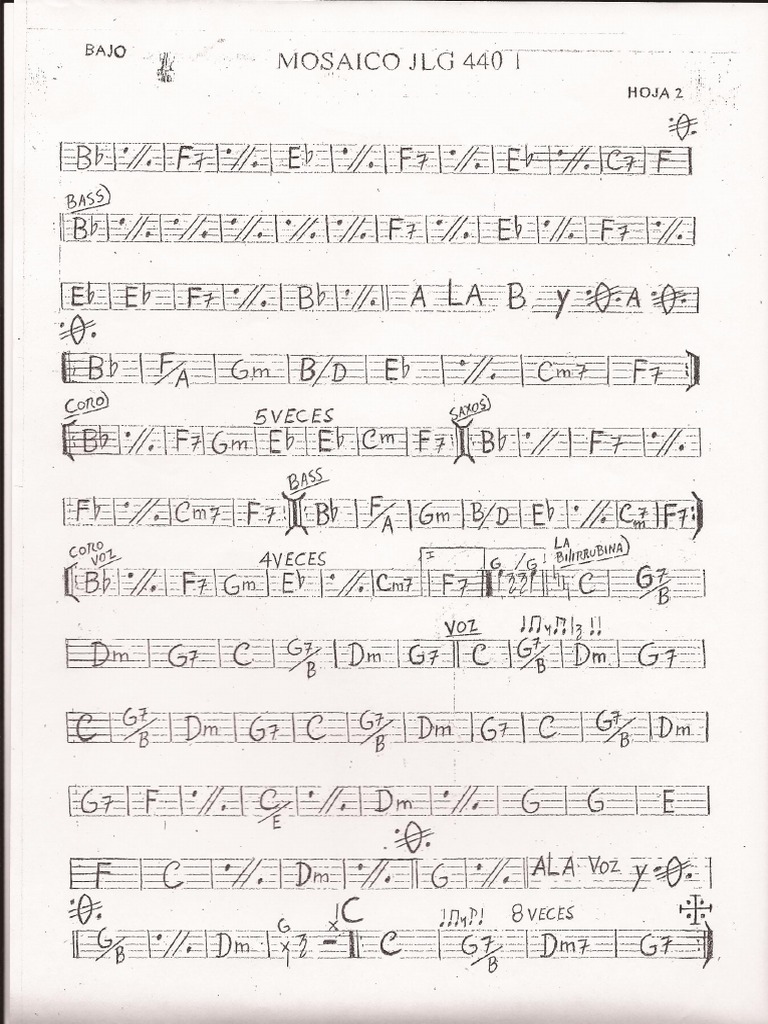 BAJO
MOSAICO JLG 440 1
HOJA 2
Bb | ٪ | F7 | ٪ | Eb | ٪ | F7 | ٪ | Eb | ٪ | C7 | F
BASS
Bb | ٪ | ٪ | ٪ | ٪ | ٪ | F7 | ٪ | Eb | ٪ | F7 | ٪
Eb | Eb | F7 | ٪ | Bb | ٪ || A LA B y A
Bb | F/A | Gm | B/D | Eb | ٪ | Cm7 | F7
CORO 5 VECES SAXOS
Bb | ٪ | F7 | Gm | Eb | Eb | Cm | F7 | Bb | ٪ | F7 | ٪
BASS
Fb | ٪ | Cm7 | F7 | Bb | F/A | Gm | B/D | Eb | ٪ | Cm7 | F7
CORO VOZ 4 VECES I G G LA BILIRRUBINA
Bb | ٪ | F7 | Gm | Eb | ٪ | Cm7 | F7 | C | G7/B
VOZ
Dm | G7 | C | G7/B | Dm | G7 || C | G7/B | Dm | G7
C | G7/B | Dm | G7 | C | G7/B | Dm | G7 | C | G7/B | Dm
G7 | F | ٪ | C/E | ٪ | Dm | ٪ | G | G | E
F | C | ٪ | Dm | ٪ || G | ٪ | A LA VOZ y
C 8 VECES
G/B | ٪ | Dm | G | C | G7/B | Dm7 | G7